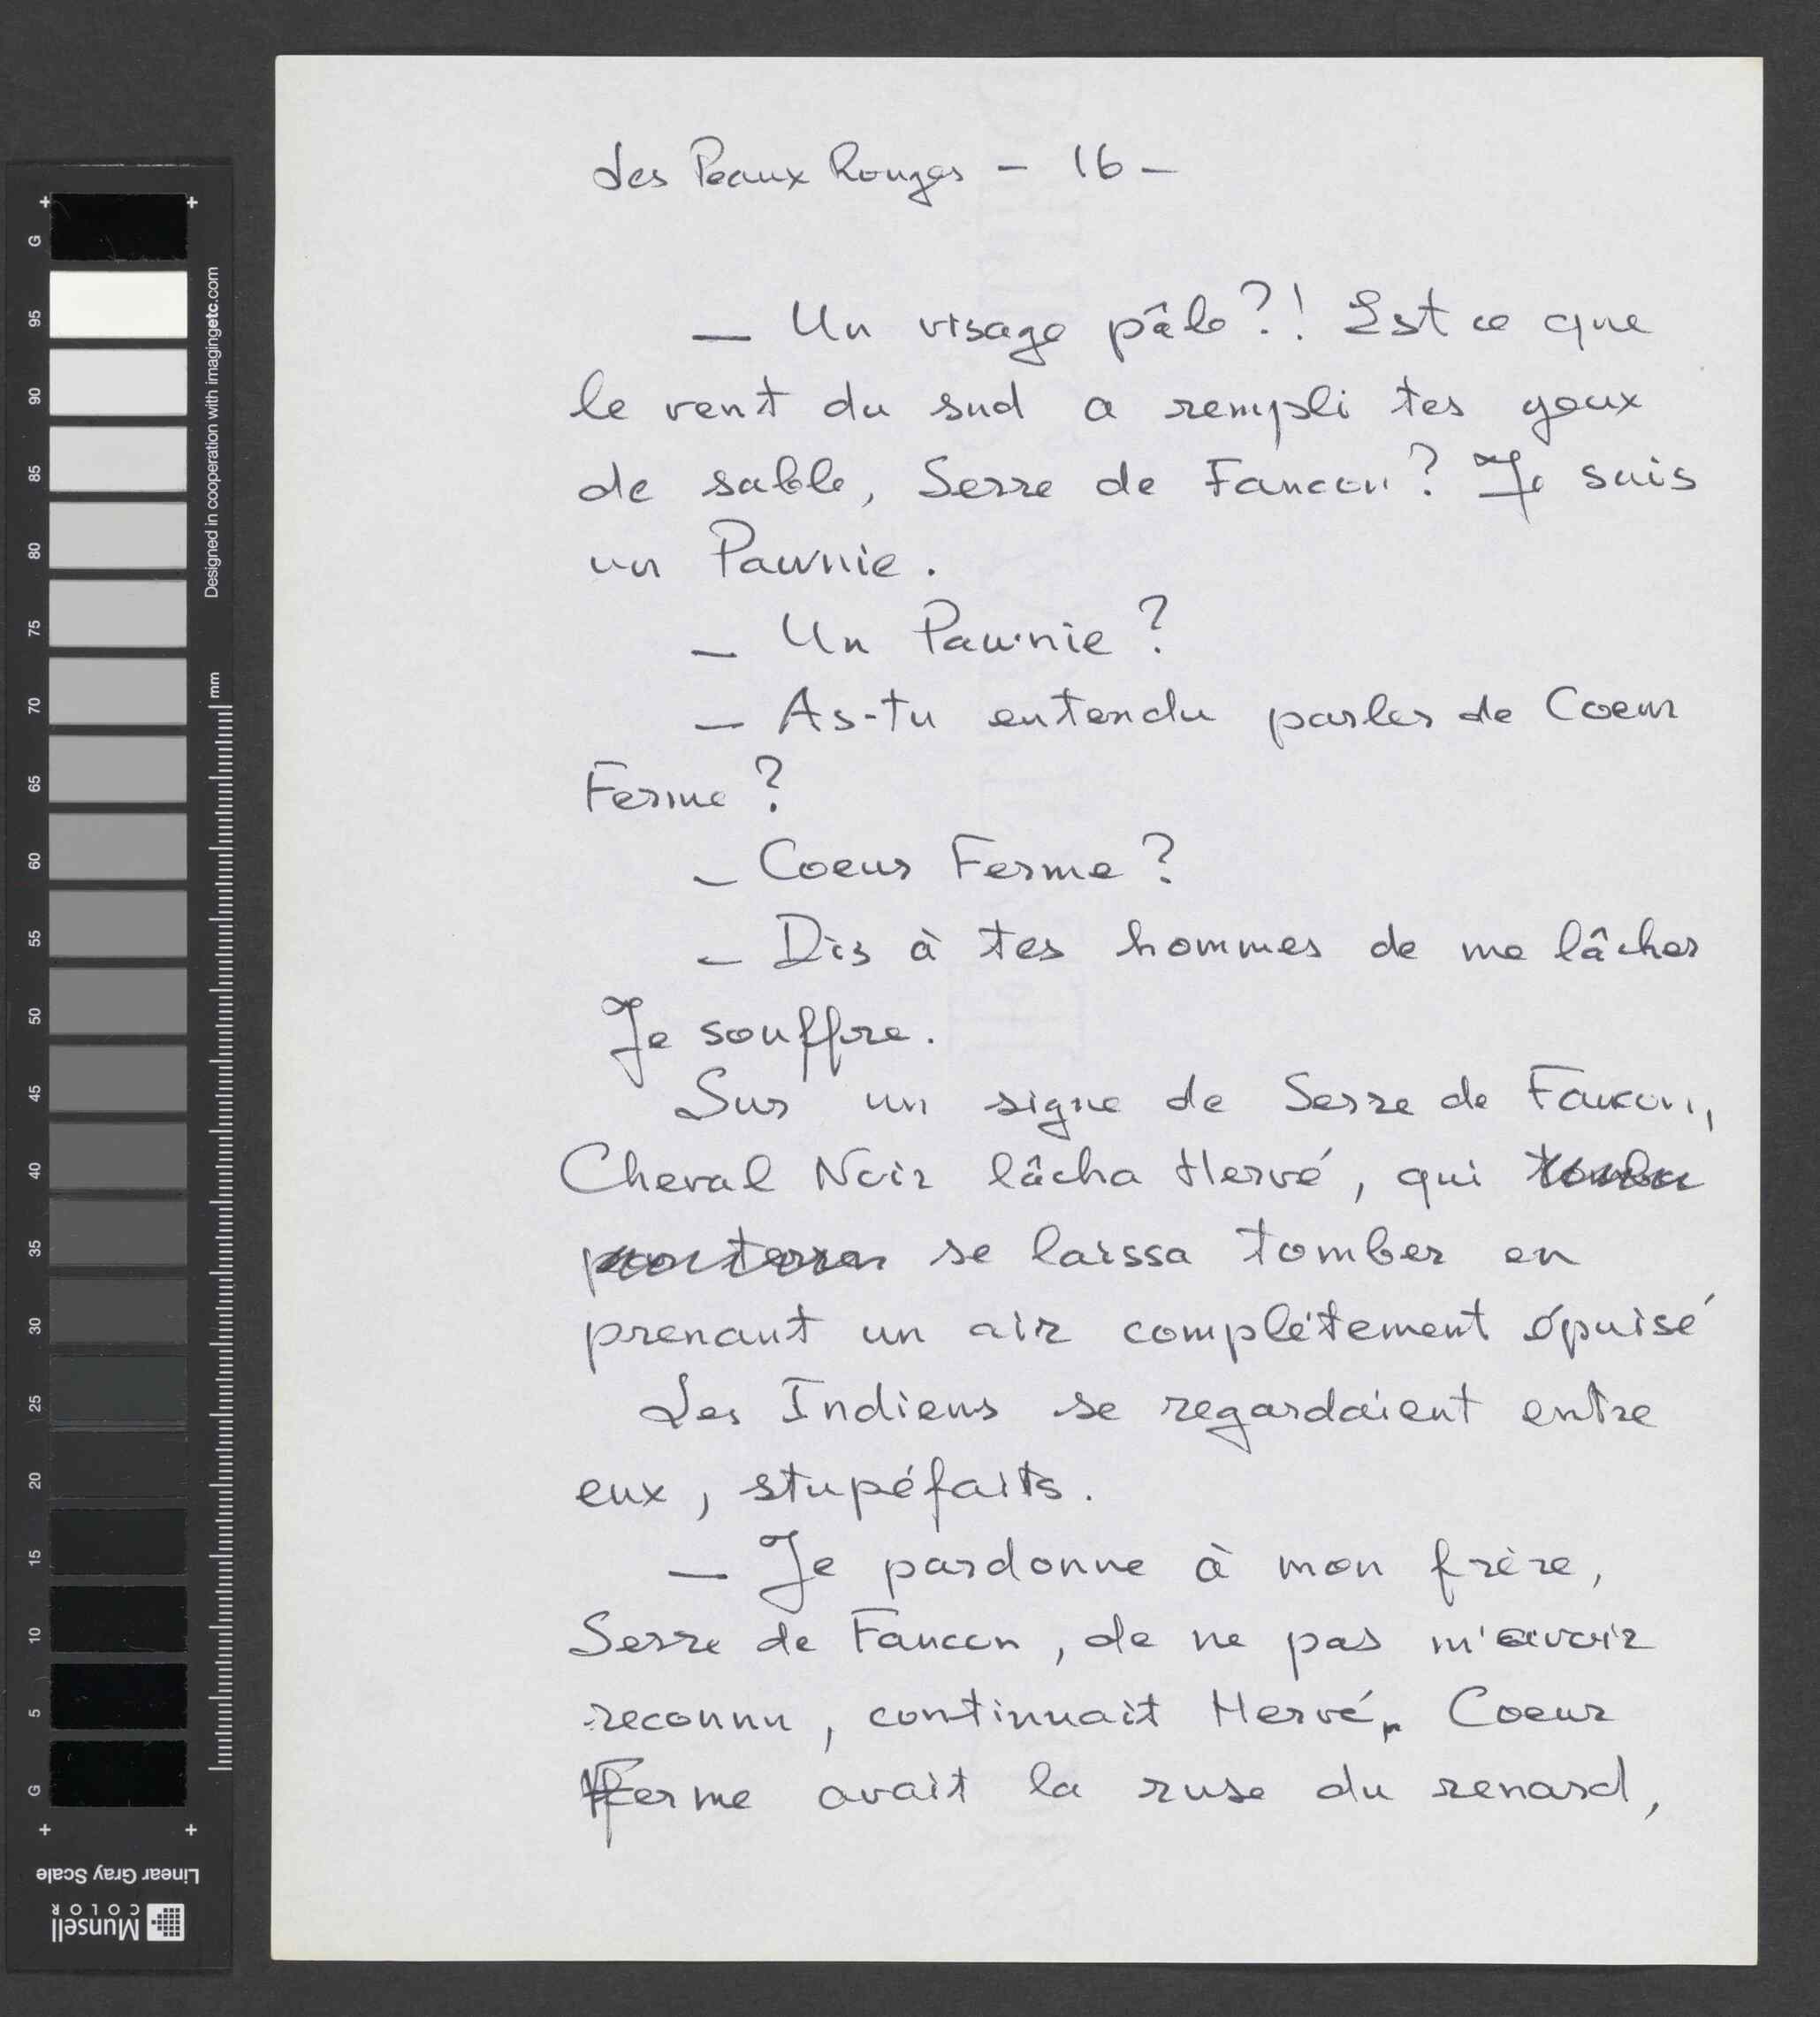 Les Peaux Rouges - 16 -
— Un visage pâle ?! Est ce que
le vent du sud a rempli tes yeux
de sable, Serre de Faucon ? Je suis
un Pawnie.
— Un Pawnie ?
— As-tu entendu parler de Coeur
Ferme ?
— Coeur Ferme ?
— Dis à tes hommes de me lâcher
Je souffre.
Sur un signe de Serre de Faucon,
Cheval Noir lâcha Hervé, qui tomba
par terre se laissa tomber en
prenant un air complètement épuisé
Les Indiens se regardaient entre
eux, stupéfaits.
— Je pardonne à mon frère,
Serre de Faucon, de ne pas m'avoir
reconnu, continuait Hervé. Coeur
Ferme avait la ruse du renard,
G
95
90
85
80
75
70
65
60
55
50
45
40
35
30
25
20
15
10
5
G
Designed in cooperation with imagingetc.com
mm
Linear Gray Scale
Munsell
COLOR